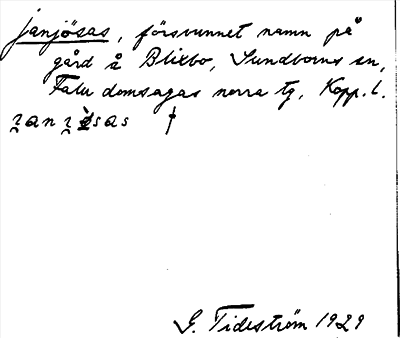 Janjösas, försvunnet namn på
gård å Blixbo, Sundborns sn,
Falu domsagas norra tg, Kopp. l.
G. Tideström 1929